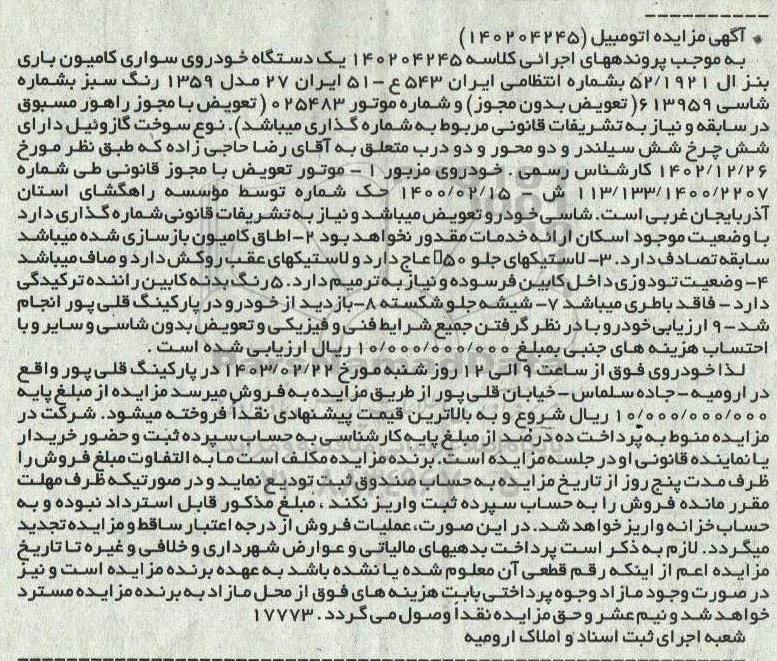 آگهی مزایده اتومبیل (۱۴۰۲۰۴۲۴۵)
به موجب پروندههای اجرائی کلاسه ۱۴۰۲۰۴۲۴۵ یک دستگاه خودروی سواری کامیون باری
بنز ال ۵۲/۱۹۲۱ بشماره انتظامی ایران ۵۴۳ ع -۵۱ ایران ۲۷ مدل ۱۳۵۹ رنگ سبز بشماره
شاسی ۶۱۳۹۵۹( تعویض بدون مجوز) و شماره موتور ۰۲۵۴۸۳ ( تعویض با مجوز راهور مسبوق
در سابقه و نیاز به تشریفات قانونی مربوط به شماره گذاری میباشد). نوع سوخت گازوئیل دارای
شش چرخ شش سیلندر و دو محور و دو درب متعلق به آقای رضا حاجی زاده که طبق نظر مورخ
۱۴۰۲/۱۲/۲۶ کارشناس رسمی . خودروی مزبور ۱ - موتور تعویض با مجوز قانونی طی شماره
۱۱۳/۱۳۳/۱۴۰۰/۲۲۰۷ ش - ۱۴۰۰/۰۲/۱۵ حک شماره توسط مؤسسه راهگشای استان
آذربایجان غربی است. شاسی خودرو تعویض میباشد و نیاز به تشریفات قانونی شماره گذاری دارد
با وضعیت موجود اسکان ارائه خدمات مقدور نخواهد بود ۲-اطاق کامیون بازسازی شده میباشد
سابقه تصادف دارد. ۳- لاستیکهای جلو ۵۰ عاج دارد و لاستیکهای عقب روکش دارد و صاف میباشد
۴- وضعیت تودوزی داخل کابین فرسوده و نیاز به ترمیم دارد. ۵ رنگ بدنه کابین راننده ترکیدگی
دارد - فاقد باطری میباشد ۷- شیشه جلو شکسته ۸-بازدید از خودرو در پارکینگ قلی پور انجام
شد-۹ ارزیابی خودرو با در نظر گرفتن جمیع شرایط فنی و فیزیکی و تعویض بدون شاسی و سایر و با
احتساب هزینه های جنبی بمبلغ ۱۰/۰۰۰/۰۰۰/۰۰۰ ریال ارزیابی شده است .
لذا خودروی فوق از ساعت ۹ الی ۱۲ روز شنبه مورخ ۱۴۰۳/۰۲/۲۲ در پارکینگ قلی پور واقع
در ارومیه - جاده سلماس - خیابان قلی پور از طریق مزایده به فروش میرسد مزایده از مبلغ پایه
۱۰/۰۰۰/۰۰۰/۰۰۰ ریال شروع و به بالاترین قیمت پیشنهادی نقداً فروخته میشود. شرکت در
مزایده منوط به پرداخت ده درصد از مبلغ پایه کارشناسی به حساب سپرده ثبت و حضور خریدار
یا نماینده قانونی او در جلسه مزایده است. برنده مزایده مکلف است مابه التفاوت مبلغ فروش را
ظرف مدت پنج روز از تاریخ مزایده به حساب صندوق ثبت تودیع نماید و در صورتیکه ظرف مهلت
مقرر مانده فروش را به حساب سپرده ثبت واریز نکند ، مبلغ مذکور قابل استرداد نبوده و به
حساب خزانه واریز خواهد شد. در این صورت، عملیات فروش از درجه اعتبار ساقط و مزایده تجدید
میگردد. لازم به ذکر است پرداخت بدهیهای مالیاتی و عوارض شهرداری و خلافی و غیره تا تاریخ
مزایده اعم از اینکه رقم قطعی آن معلوم شده یا نشده باشد به عهده برنده مزایده است و نیز
در صورت وجود مازاد وجوه پرداختی بابت هزینه های فوق از محل مازاد به برنده مزایده مسترد
خواهد شد و نیم عشر و حق مزایده نقداً وصول می گردد . ۱۷۷۷۳
شعبه اجرای ثبت اسناد و املاک ارومیه